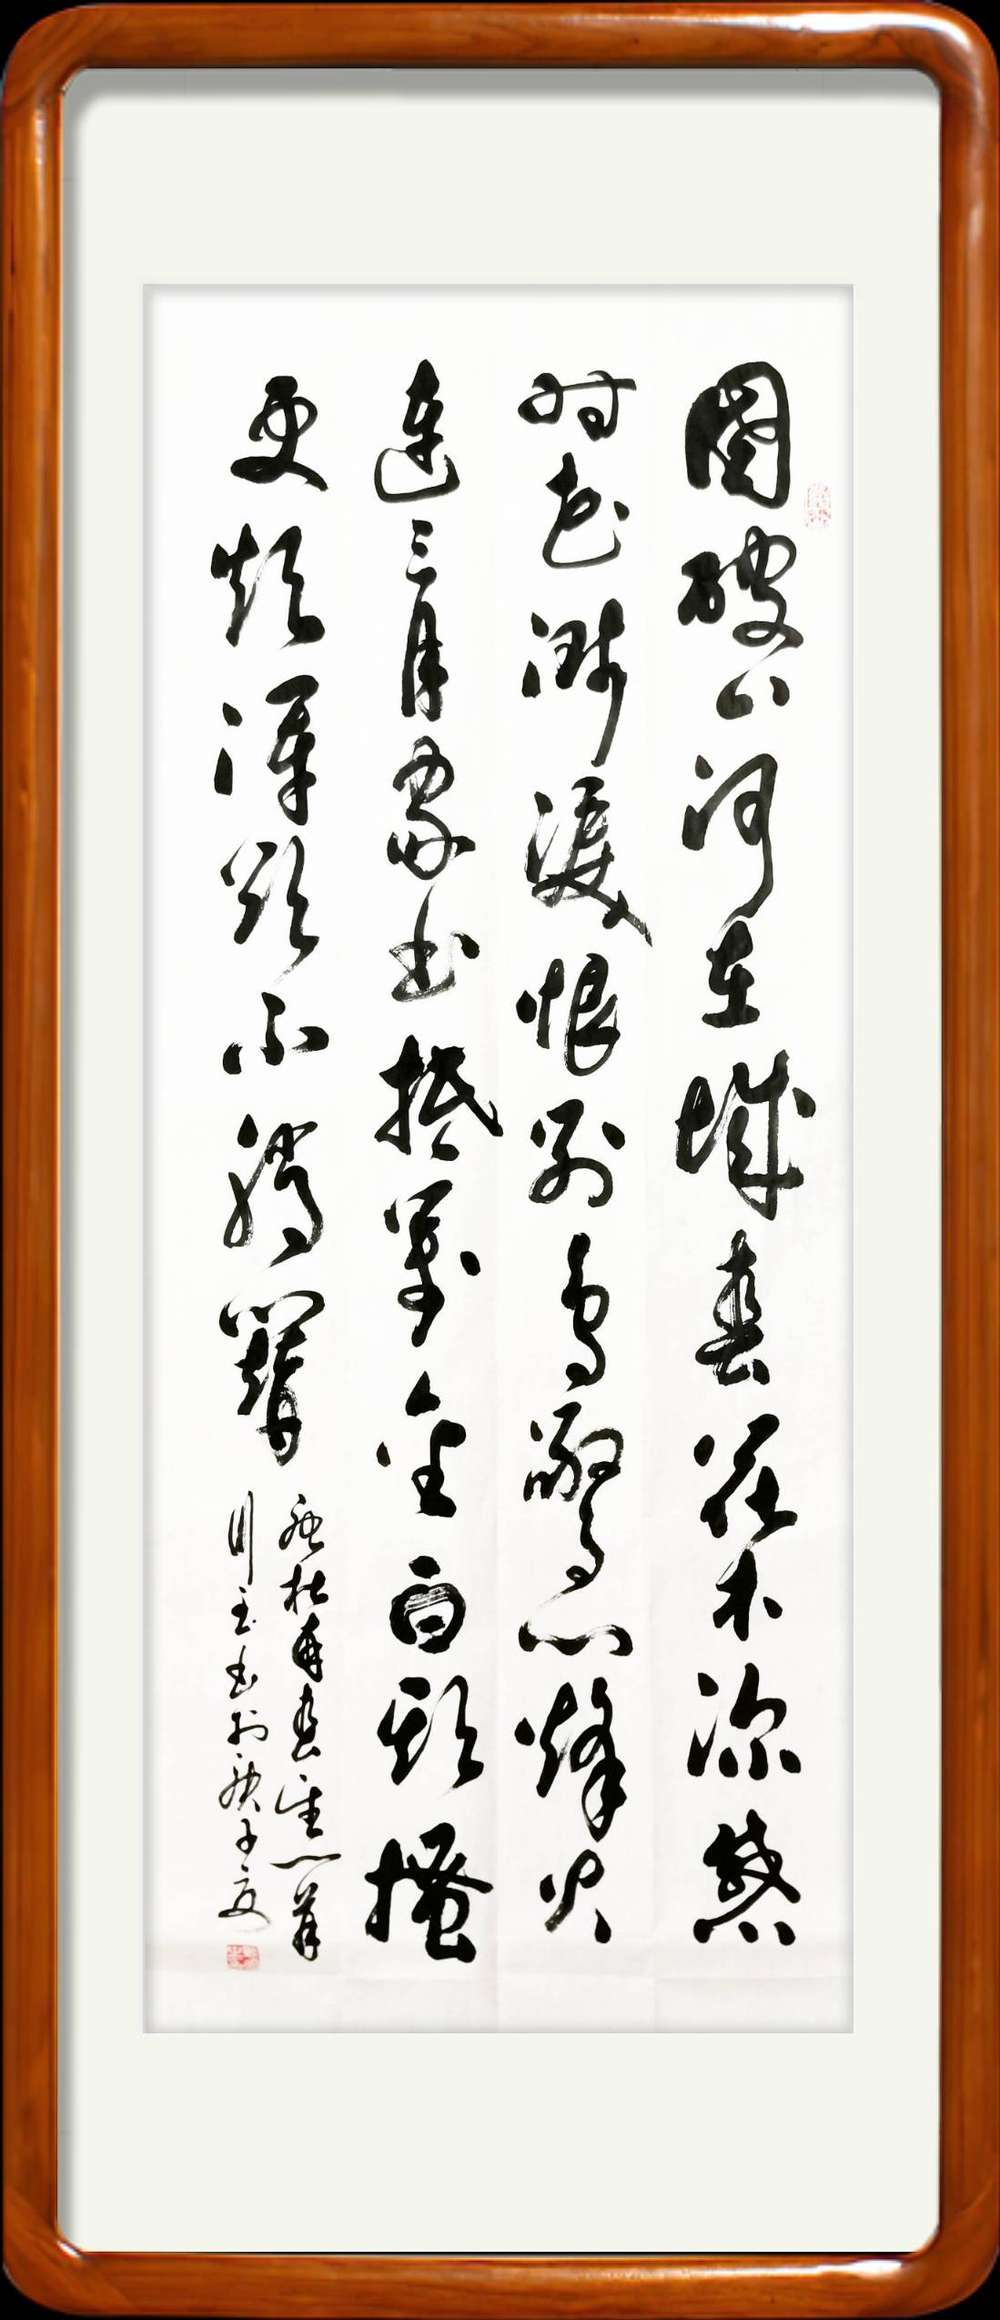 國破山河在城春花木深感
時花濺淚恨別鳥驚心烽火
連三月家書抵萬金白頭搔
更短渾欲不勝簪
杜甫春望
書於庚子夏